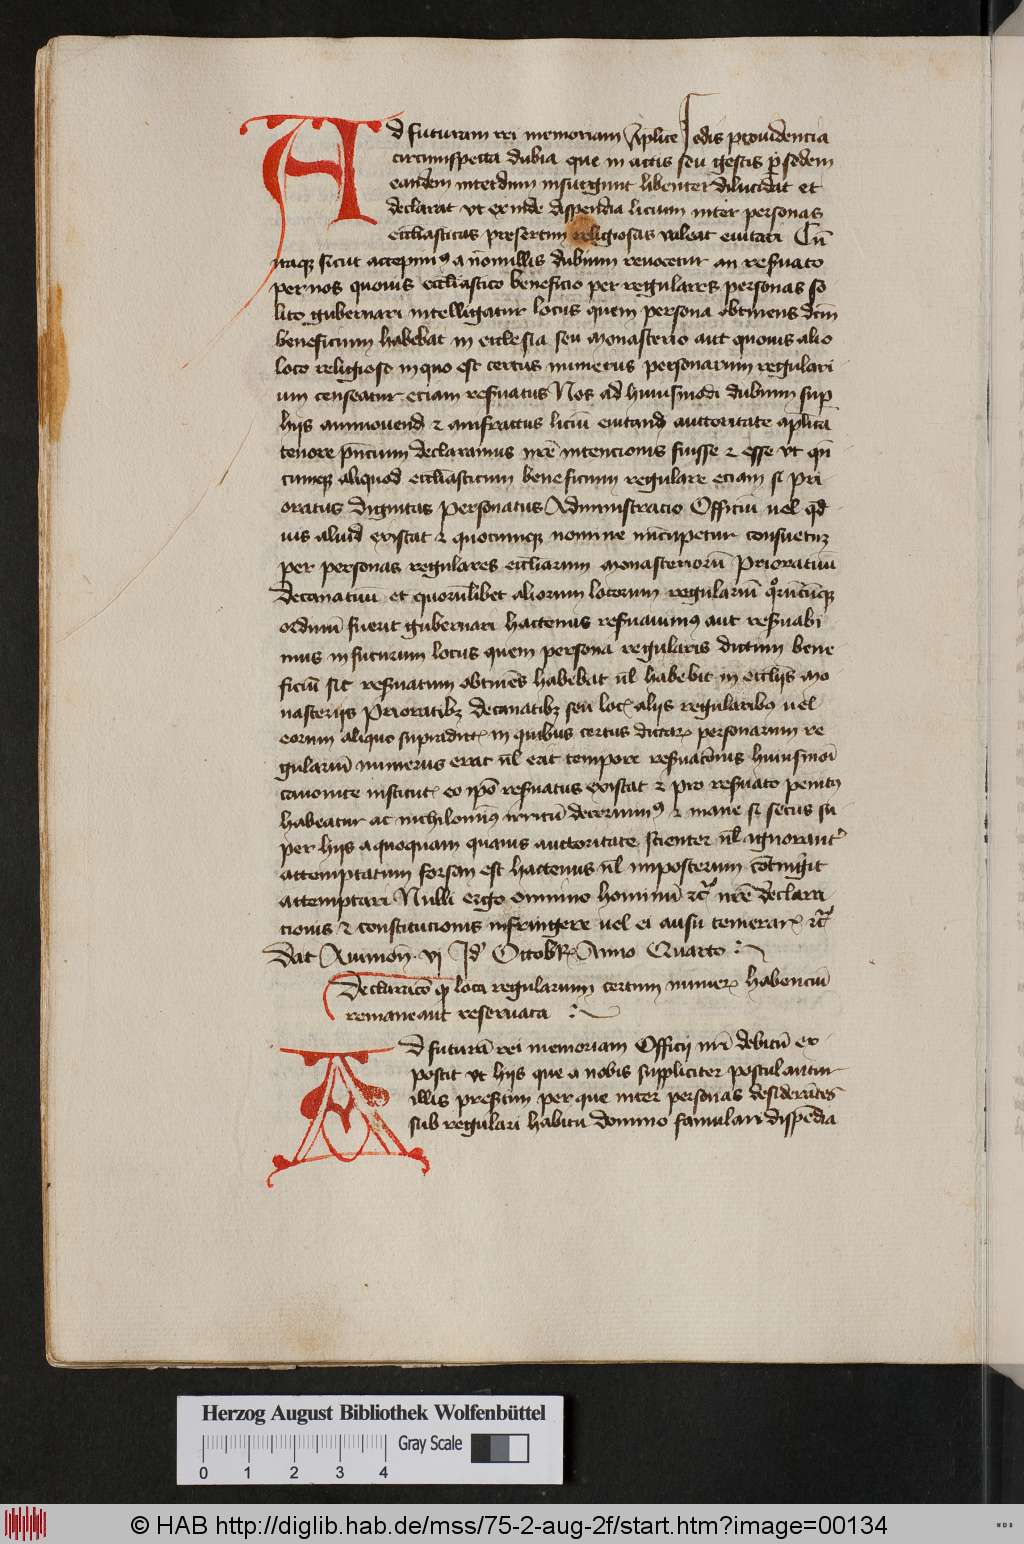 Ad futuram rei memoriam Aplice sedis prouidencia
circumspecta dubia que in actis seu gestis p sedem
eandem interdum insurgunt libenter dilucidat et
declarat vt exinde dispendia licium inter personas
ecclasticas presertim religiosas valeat euitari Cū
itaqz sicut accepimꝰ a nōnullis dubium reuocetur an resuato
per nos quouis eccliastico beneficio per regulares personas so
lito gubernari intelligatur locus quem persona obtinens dcm
beneficium habebat in ecclesia seu monasterio aut quouis alio
loco religioso in quo est certus numerus personarum regulari
um censeatur eciam resuatus Nos ad huiusmodi dubium sup
hijs ammouend et amfractus liciū euitand auctoritate aplica
tenore pncium declaramus nre intencionis fuisse et esse vt qn
cumqz aliquod eccliasticum beneficium regulare eciam si pri
oratus dignitas personatus Administracio Officiū uel qd
uis aliud existat et quocumqz nomine nūcupetur consuetuz
per personas regulares eccliarum monasteriorū Prioratuū
decanatuū et quorūlibet aliorum locorum regulariū qrūcūqz
ordinū fuerit gubernari hactenus resuauimꝰ aut resuabi
mus in futurum locus quem persona regularis dictum bene
ficiū sic resuatum obtinēs habebat ul habebit in ecclijs mo
nasterijs Prioratibz decanatibz seu loc alijs regularibo uel
eorum aliquo supradict in quibus certus dictar personarum re
gulariū numerus erat ul erit tempore resuacōnis huiusmoi
canonice institut eo ipo resuatus existat et pro resuato penitꝰ
habeatur ac nichilominꝰ irritū decernimꝰ et inane si secus su
per hijs a quoquam quauis auctoritate scienter ul ignorant
attemptatum forsan est hactenus ul imposterum cōtingit
attemptari Nulli ergo omnino hominū etc nre declara
cionis et constitucionis infringere uel ei ausu temerar etc
Dat Auinion vj Id Octobr Anno Quarto
Declaracō qp loca regularum certum numer habenciū
remaneant reseruata
Ad futurā rei memoriam Officij nri debitū ex
poscit vt hijs que a nobis suppliciter postulantur
illis presetim per que inter personas desiderātes
sub regulari habitu domino famulari dispēdia
Herzog August Bibliothek Wolfenbüttel
Gray Scale
0 1 2 3 4
© HAB http://diglib.hab.de/mss/75-2-aug-2f/start.htm?image=00134